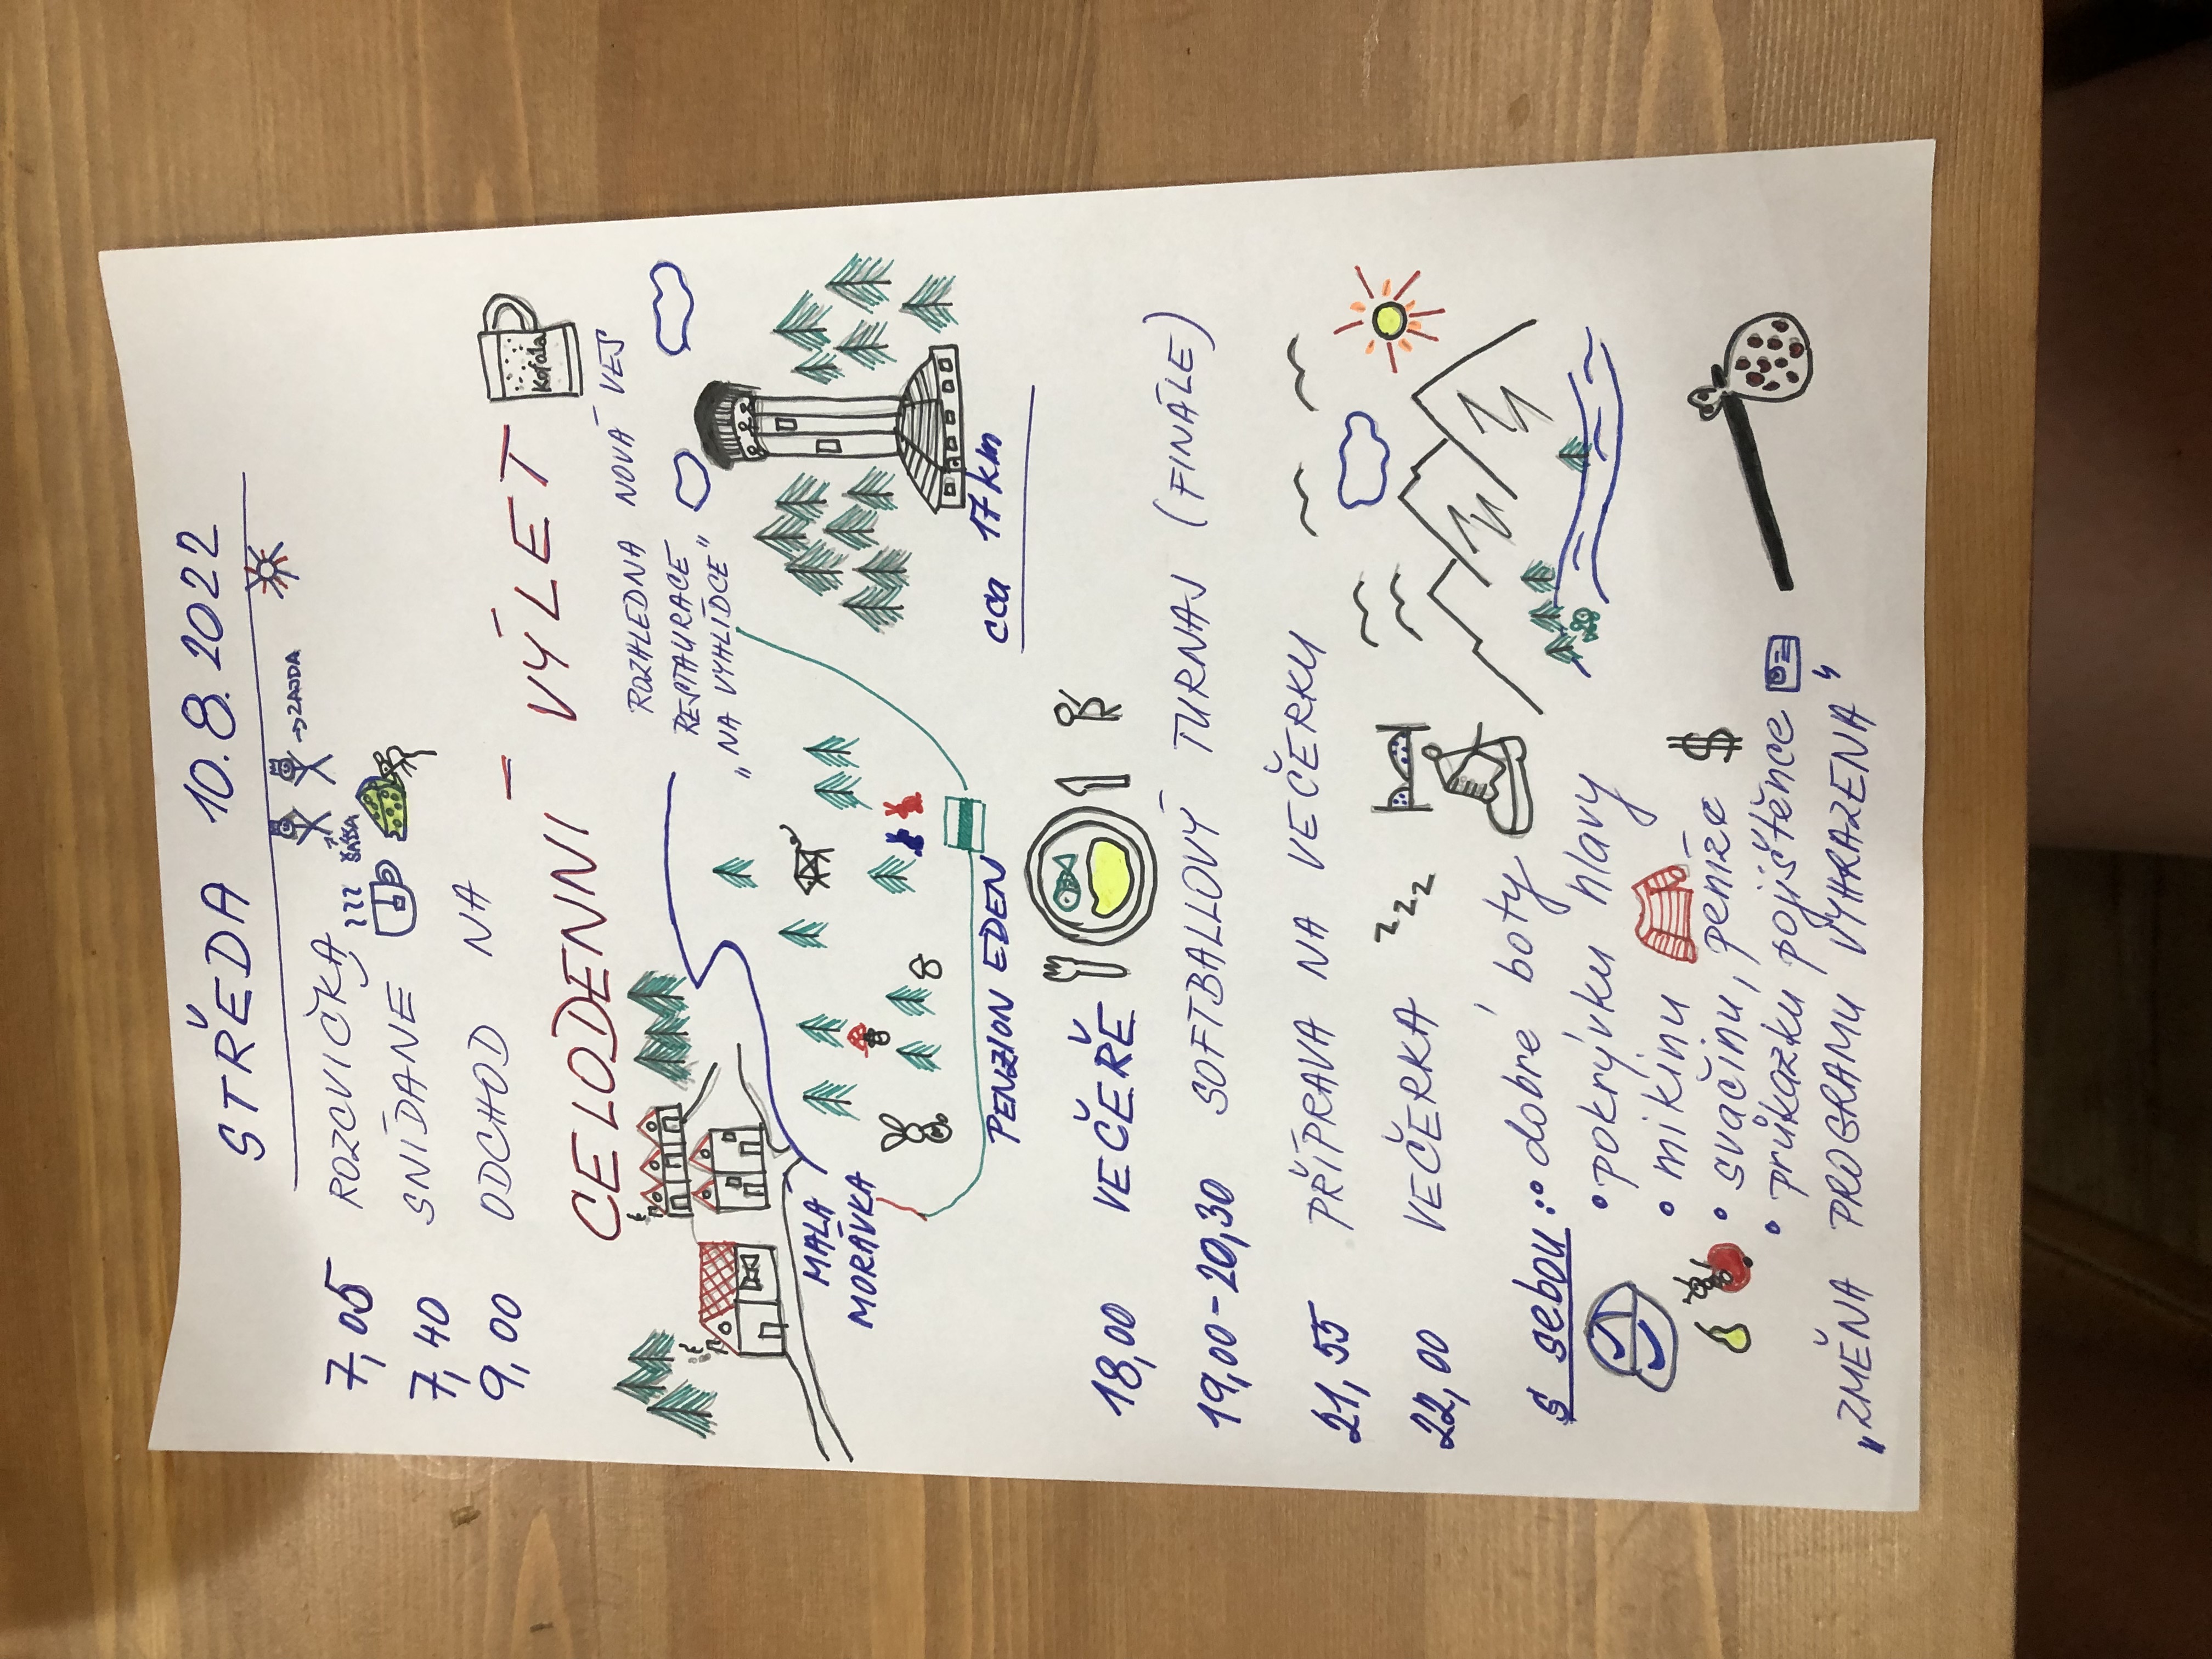 STŘEDA 10.8.2022
7,05 ROZCVIČKA
→ZAJDA
SAŠŠA
7,40 SNÍDANE
9,00 ODCHOD NA
CELODENNI – VÝLET
Kofola
ROZHLEDNA NOVÁ VES
RESTAURACE
„NA VYHLÍDCE"
MALA
MORÁVKA
PENZION EDEN
cca 17km
18,00 VEČEŘE
19,00-20,30 SOFTBALLOVÝ TURNAJ (FINÁLE)
21,55 PŘÍPRAVA NA VEČERKU
22,00 VEČERKA
zzz
S sebou: • dobré boty
• pokrývku hlavy
• mikinu
• svačinu, peníze $
• průkazku pojištěnce
„ZMĚNA PROGRAMU VYHRAZENA"